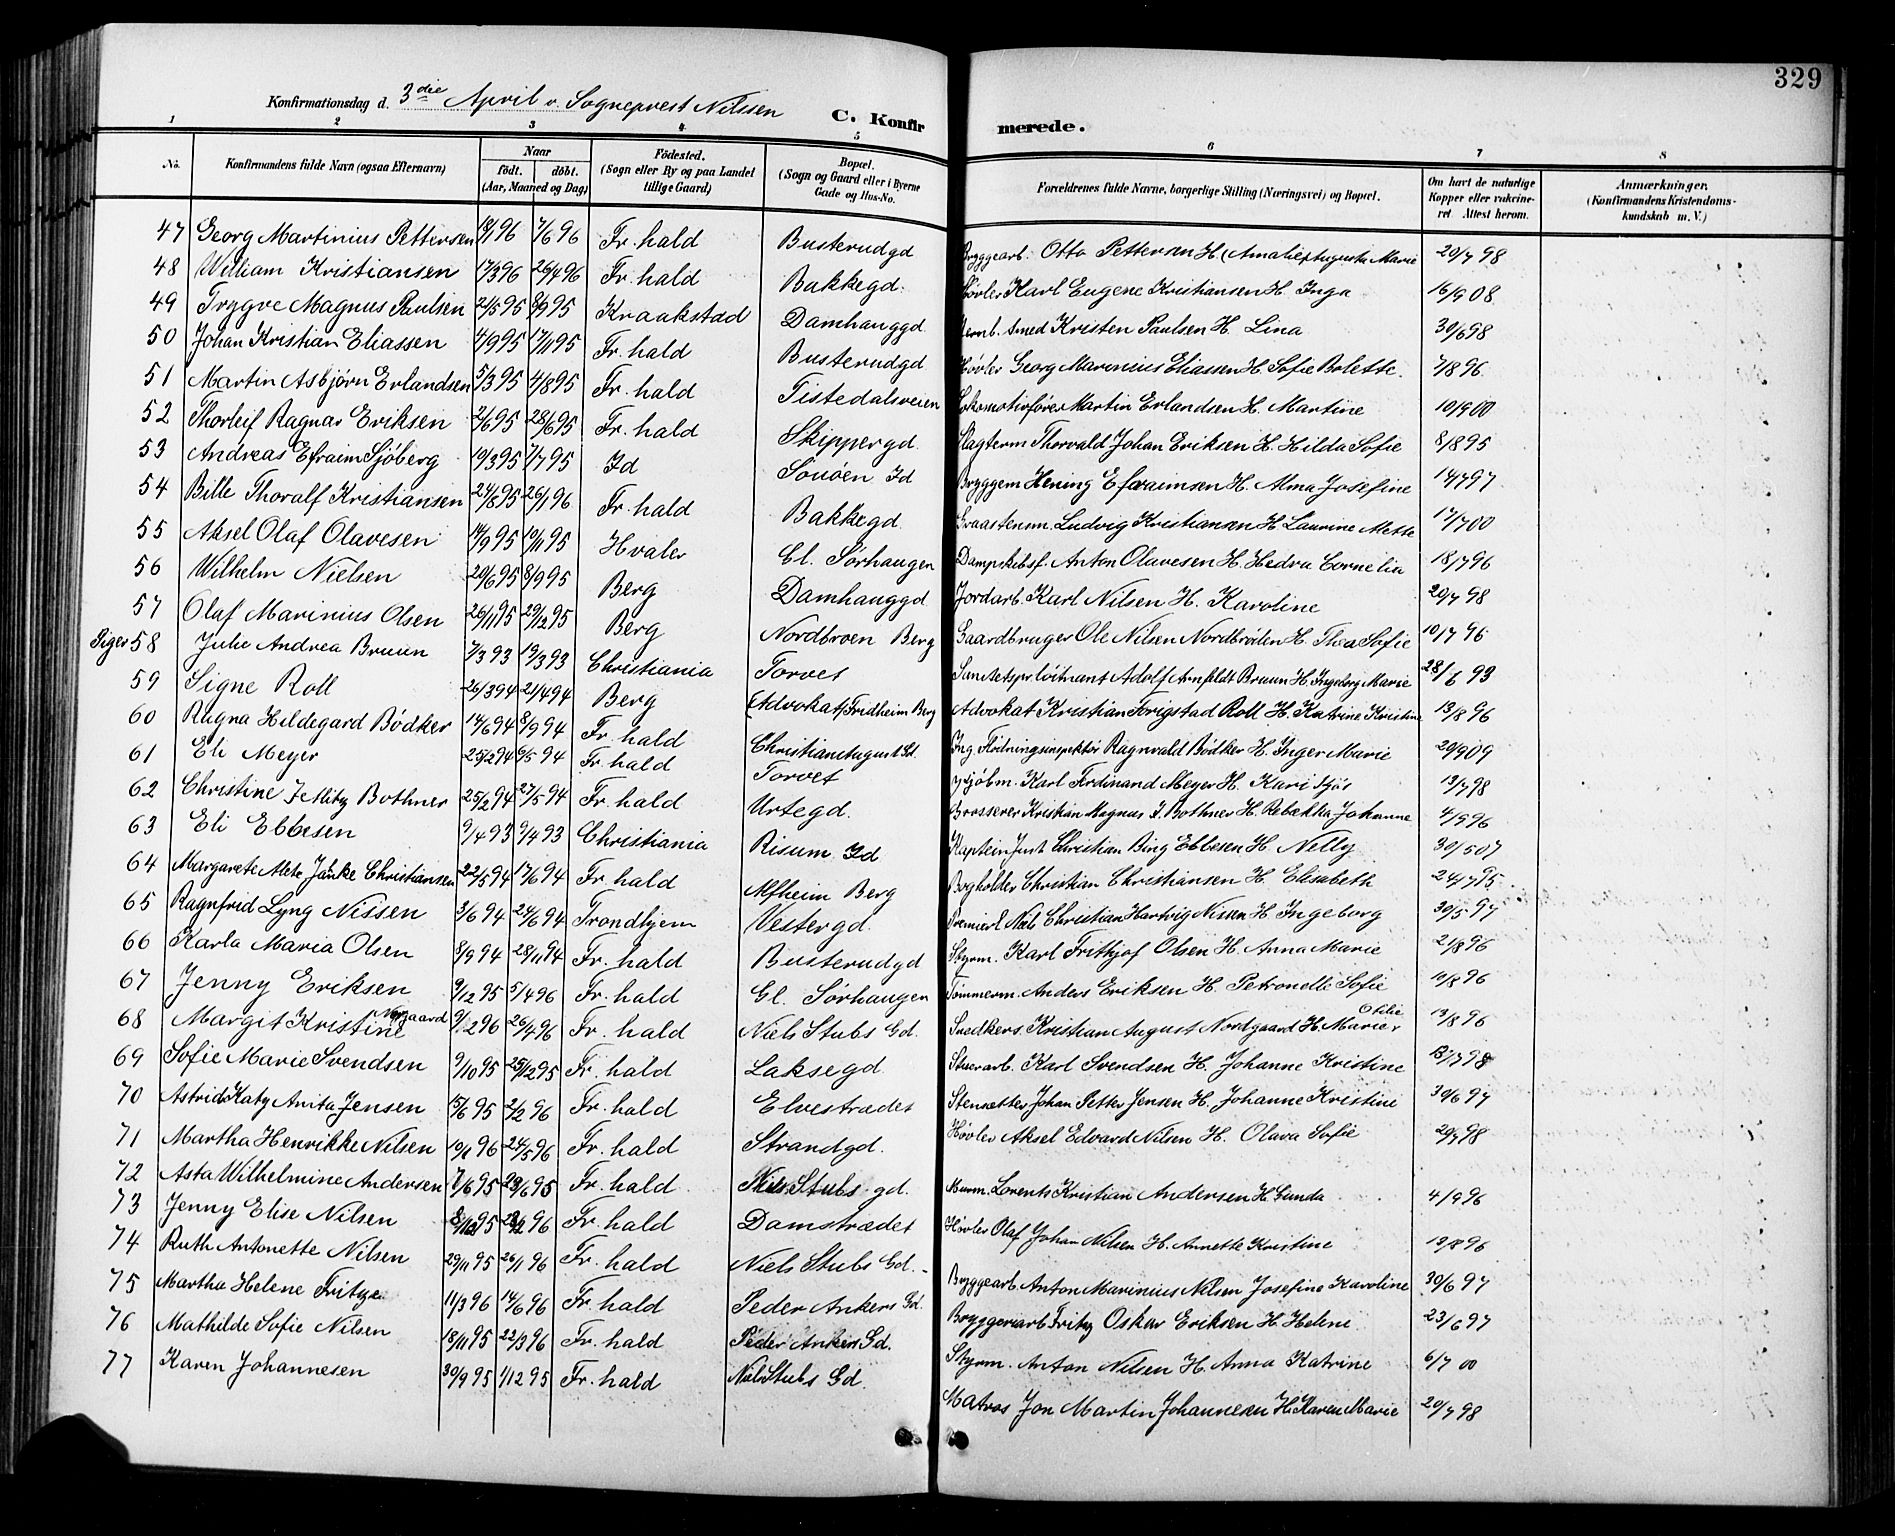 329
Konfirmationsdag d. 3die April v. Sogneprest Nilssen
C. Konfirmerede.
1 2 3 4 5 6 7 8
No. Konfirmandens fulde Navn (ogsaa Efternavn) Naar født. døbt. (Aar, Maaned og Dag) Fødested. (Sogn eller By og paa Landet tillige Gaard) Bopæl. (Sogn og Gaard eller i Byerne Gade og Hus-No. Forældrenes fulde Navne, borgerlige Stilling (Næringsvei) og Bopæl. Om havt de naturlige Kopper eller vakcineret. Attest herom. Anmærkninger. (Konfirmandens Kristendomskundskab m. V.)
47 Georg Martinius Pettersen 18/1 96 7/6 96 Fr. hald Busterudgd Bryggearb. Otto Pettersen H. (Amalie) Augusta Marie 20/7 98
48 William Kristiansen 17/3 96 26/4 96 Fr. hald Bakkegd. Høvler Karl Eugene Kristiansen H. Inga 16/9 08
49 Trygve Magnus Paulsen 21/5 95 8/9 95 Kraakstad Damhauggd Kristen Paulsen H. Lina 30/6 98
50 Johan Kristian Eliassen 4/9 95 17/11 95 Fr. hald Busterudgd Høvler Georg Marinius Eliassen H. Sofie Bolette. 7/8 96
51 Martin Asbjørn Erlandsen 5/3 95 4/8 95 Fr. hald Tistedalsveien Lokomotivfører Martin Erlandsen H. Martine 10/9 00
52 Thorleif Ragnar Eriksen 2/6 95 28/6 95 Fr. hald Skippergd. Slagterm Thorvald Johan Eriksen H. Hilda Sofie 8/8 95
53 Andreas Efraim Sjøberg 19/3 95 7/7 95 Id Sauøen Id Bryggem Hening Efraimsen H. Alma Josefine 14/7 97
54 Bille Thoralf Kristiansen 24/8 95 26/1 96 Fr. hald Bakkegd. Graastensm. Ludvig Kristiansen H. Laurine Mette 17/7 00
55 Aksel Olaf Olavesen 14/9 95 10/11 95 Hvaler Gl. Sørhaugen Dampskibsf. Anton Olavesen H. Hedva Cornelia 18/7 96
56 Wilhelm Nielsen 20/6 95 8/9 95 Berg Damhauggd Jordarb. Karl Nilsen H. Karoline 20/7 98
57 Olaf Marinius Olsen 26/11 95 29/12 95 Berg Nordbroen Berg Gaardbruger Ole Nilsen Nordbrøden H. Thea Sofie 10/7 96
Piger 58 Julie Andrea Bruun 7/3 93 19/3 93 Christiania Torvet Adolf Arnfeldt Bruun H. Ingeborg Marie 28/6 93
59 Signe Roll 26/3 94 21/4 94 Berg (Advokat) Fridheim Berg Advokat Kristian Forigstad Roll H. Katrine Kristine 13/8 96
60 Ragna Hildegard Bødker 14/6 94 8/9 94 Fr. hald Christian August Gd. Ing. Flødningsinspektør Ragnvald Bødker H. Inger Marie 20/9 09
61 Eli Meyer 25/2 94 6/5 94 Fr. hald Torvet Kjøbm. Karl Ferdinand Meyer H. Kari Sjøs 13/7 98
62 Christine J. Mitz Bothner 25/2 94 27/5 94 Fr. hald Urtegd. Brosserer Kristian Magnus J. Bothner H. Rebekka Johanne 4/9 96
63 Eli Ebbesen 9/4 93 9/4 93 Christiania Risum Id Kaptein Just Christian Bing Ebbesen H. Nelly 30/5 07
64 Margarete Mete Janke Christiansen 22/5 94 17/6 94 Fr. hald Alfheim Berg Bogholder Christian Christiansen H. Elisabeth 24/7 95
65 Ragnfrid Lyng Nissen 3/6 94 24/6 94 Trondhjem Vestergd. Premierl. Niels Christian Hartvig Nissen H. Ingeborg 30/5 97
66 Karla Maria Olsen 8/9 94 28/11 94 Fr. hald Busterudgd Styrm. Karl Frithjof Olsen H. Anna Marie 21/8 96
67 Jenny Eriksen 9/12 95 5/4 96 Fr. hald Gl. Sørhaugen Tømmerm. Anders Eriksen H. Petronelle Sofie 11/8 96
68 Margit Kristine Norgaard 9/2 96 26/4 96 Fr. hald Niels Stubs Gd. Snedkers. Kristian August Nordgaard H. Marie Otilie 13/8 96
69 Sofie Marie Svendsen 9/10 95 25/12 95 Fr. hald Laksegd. Stuerarb. Karl Svendsen H. Johanne Kristine 13/7 98
70 Astrid Katy Anita Jensen 15/6 95 2/2 96 Fr. hald Elvestrædet Stensætter Johan Petter Jensen H. Johanne Kristine 30/6 97
71 Martha Henrikke Nilsen 19/1 96 24/5 96 Fr. hald Strandgd. Høvler Aksel Edvard Nilsen H. Olava Sofie 20/7 98
72 Asta Wilhelmine Andersen 7/6 95 23/6 95 Fr. hald Niels Stubs gd. Murm. Lorents Kristian Andersen H. Gunda 4/9 96
73 Jenny Elise Nilsen 8/12 95 23/2 96 Fr. hald Damstrædet Høvler Olaf Johan Nilsen H. Annette Kristine 19/8 96
74 Ruth Antonette Nilsen 29/11 95 26/1 96 Fr. hald Niels Stubs Gd. Bryggearb. Anton Marinius Nilsen Josefine Karoline 30/6 97
75 Martha Helene Fritze 11/3 96 14/6 96 Fr. hald Peder Ankers Gd. Bryggeriarb Fritz Oskar Eriksen H. Helene 23/6 97
76 Mathilde Sofie Nilsen 18/11 95 22/3 96 Fr. hald Peder Ankers Gd. Styrm. Anton Nilsen H. Anna Katrine 6/7 00
77 Karen Johannesen 30/9 95 1/12 95 Fr. hald Niels Stubs Gd. Matros Jon Martin Johannesen H. Karen Marie 20/7 98